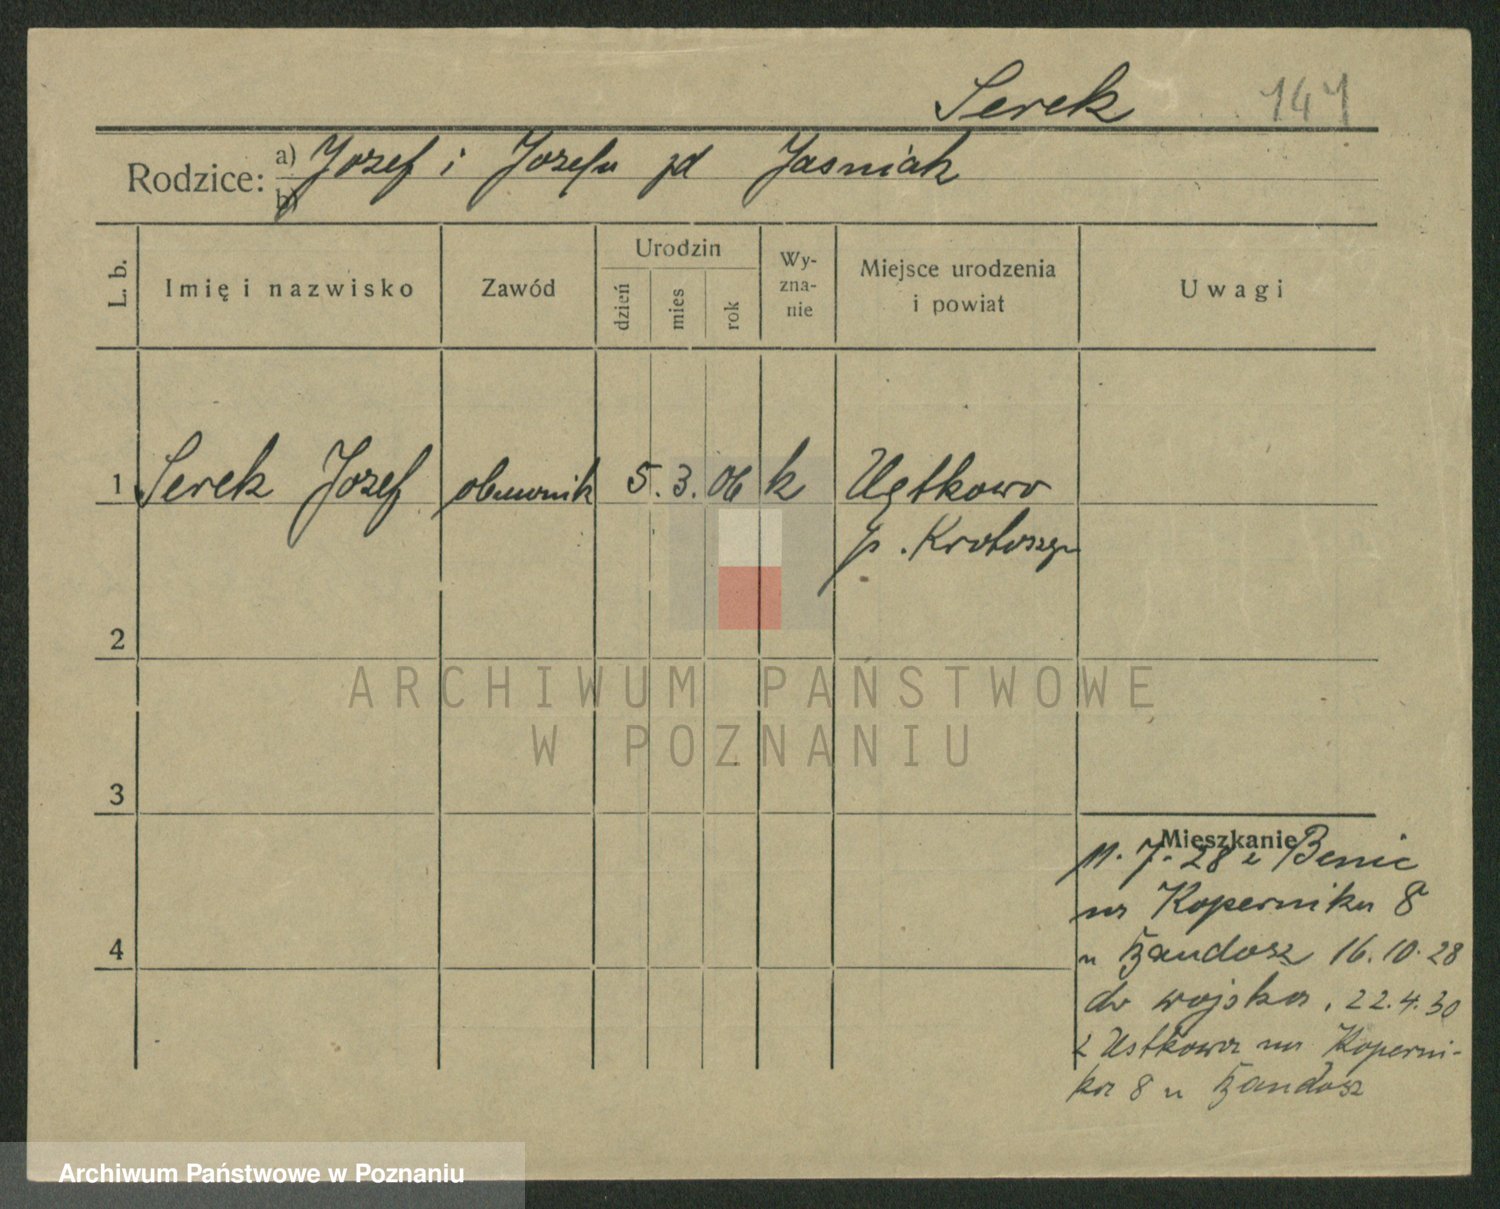 Serek 147
Rodzice: a) Jozef i Jozefa zd Jasniak
b)
L. b. Imię i nazwisko Zawód Urodzin dzień mies rok Wy-zna-nie Miejsce urodzenia i powiat Uwagi
1 Serek Jozef obuwnik 5. 3. 06 k Ustkowo
p. Krotoszyn
2
3
4
Mieszkanie
11. 7. 28 z Benic
na Kopernika 8
u 16. 10. 28
do wojska, 22. 4. 30
z Ustkowa na Koperni-
ka 8 u
ARCHIWUM PAŃSTWOWE
W POZNANIU
Archiwum Państwowe w Poznaniu